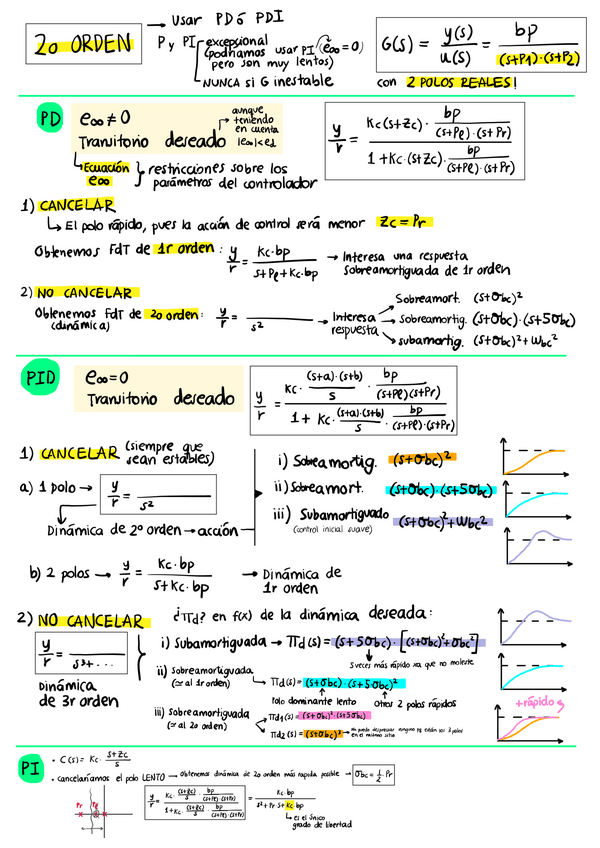 2o ORDEN
→ Usar PD ó PDI
P y PI
excepcional
(podríamos usar PI (e∞=0)
pero son muy lentos)
NUNCA si G inestable
G(s) = y(s)/u(s) = bp/((s+P1)·(s+P2))
con 2 POLOS REALES!
PD
e∞ ≠ 0
Transitorio deseado
aunque
teniendo
en cuenta
|e∞|<ed
Ecuación
e∞
restricciones sobre los
parámetros del controlador
y/r = (Kc(s+Zc)· bp/((s+Pl)·(s+Pr)))/(1+Kc·(s+Zc)· bp/((s+Pl)·(s+Pr)))
1) CANCELAR
↳ El polo rápido, pues la acción de control será menor Zc = Pr
Obtenemos FdT de 1r orden : y/r = Kc·bp/(s+Pl+Kc·bp) → Interesa una respuesta
sobreamortiguada de 1r orden
2) NO CANCELAR
Obtenemos FdT de 2o orden: y/r = /s² → Interesa
(dinámica)
respuesta
Sobreamort. (s+σbc)²
Sobreamortig. (s+σbc)·(s+5σbc)
subamortig. (s+σbc)²+Wbc²
PID
e∞=0
Transitorio deseado
y/r = (Kc· (s+a)·(s+b)/s · bp/((s+Pl)(s+Pr)))/(1+ Kc· (s+a)·(s+b)/s · bp/((s+Pl)·(s+Pr)))
1) CANCELAR (siempre que
sean estables)
a) 1 polo → y/r = /s²
Dinámica de 2º orden → acción
i) Sobreamortig. (s+σbc)²
ii) Sobreamort. (s+σbc)·(s+5σbc)
iii) Subamortiguado (s+σbc)²+Wbc²
(control inicial suave)
b) 2 polos → y/r = Kc·bp/(s+Kc·bp) → Dinámica de
1r orden
2) NO CANCELAR
¿Πd? en f(x) de la dinámica deseada:
y/r = /s³+...
Dinámica
de 3r orden
i) Subamortiguada → Πd(s) = (s+5σbc)·[(s+σbc)²+σbc²]
5 veces más rápido xa que no moleste
ii) Sobreamortiguada
(≃ al 1r orden)
→ Πd(s) = (s+σbc)·(s+5σbc)²
Polo dominante lento
Otros 2 polos rápidos
iii) Sobreamortiguada
(≃ al 2o orden)
Πd1(s) = (s+σbc)²·(s+5σbc)
Πd2(s) = (s+σbc)³ → no puedo despreciar ninguno pq están los 3 polos
en el mismo sitio
+rápido
PI
· C(s) = Kc· (s+Zc)/s
· Cancelaríamos el polo LENTO → Obtenemos dinámica de 2o orden más rapida posible → σbc = 1/2·Pr
Pr
Pl
y/r = (Kc· (s+Zc)/s · bp/((s+Pl)·(s+Pr)))/(1+Kc· (s+Zc)/s · bp/((s+Pl)·(s+Pr))) = Kc·bp/(s²+Pr·s+Kc·bp)
↳ es el único
grado de libertad